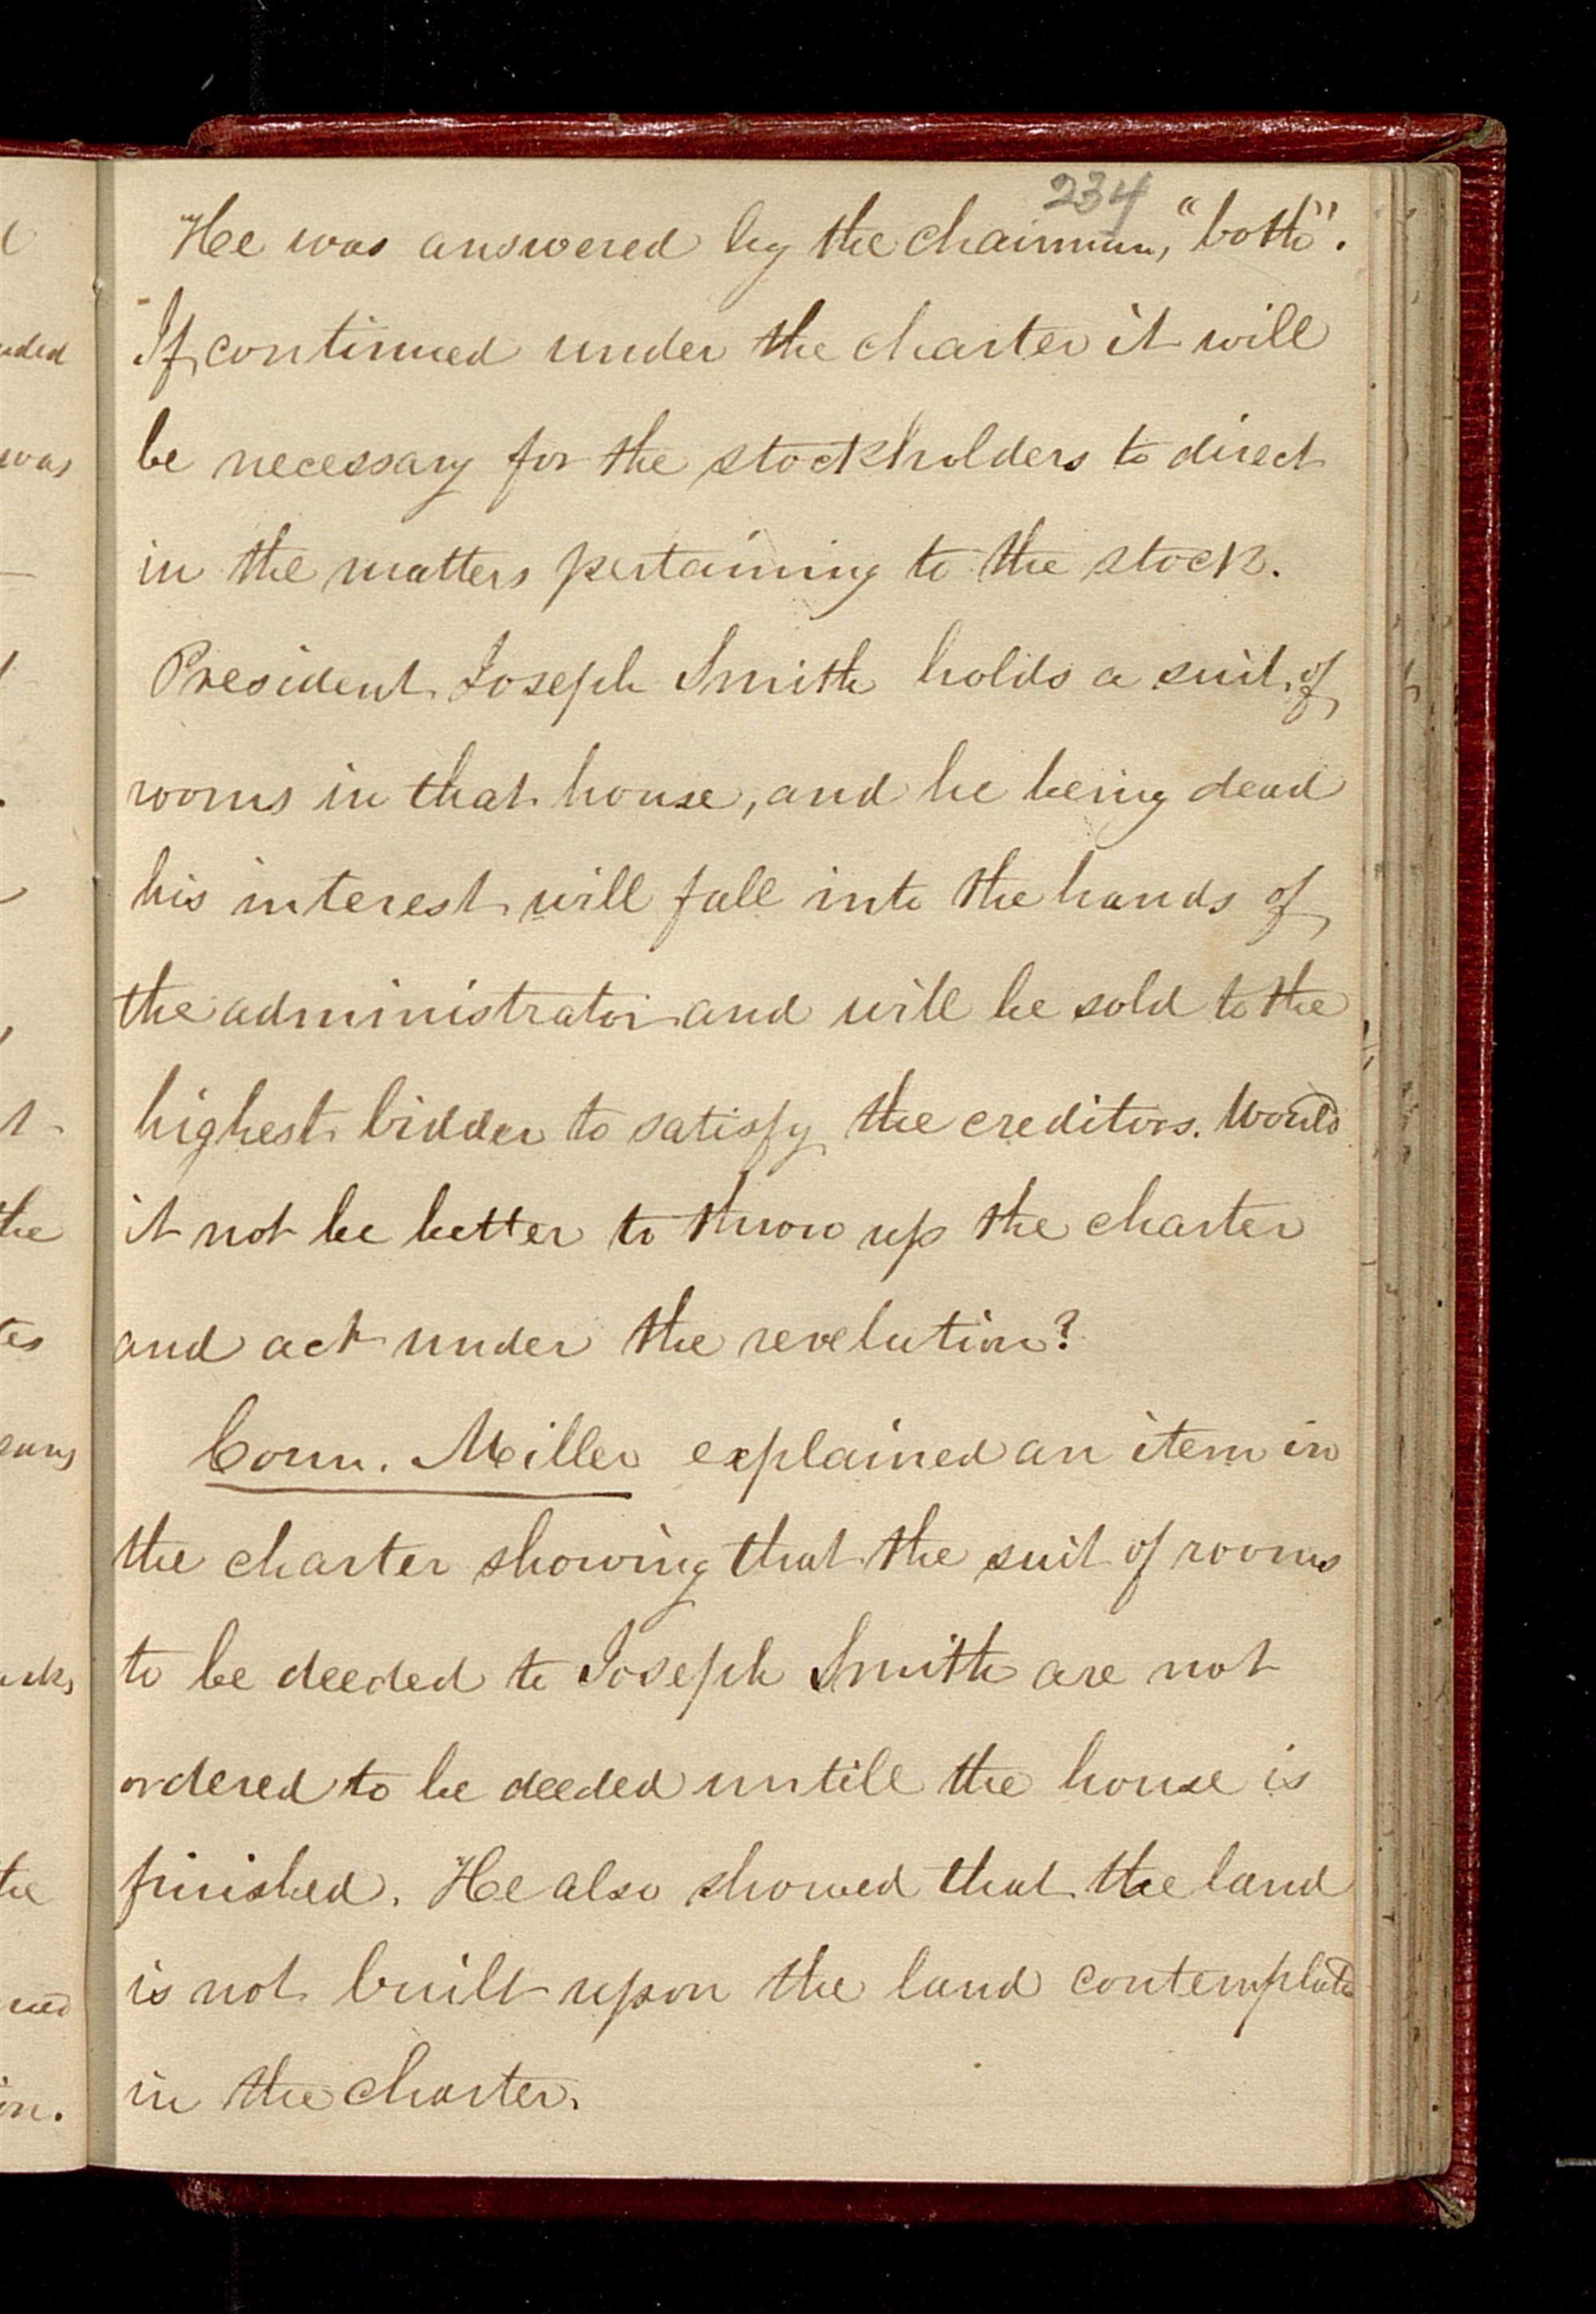 234
He was answered by the chairman, "both".
If continued under the charter it will
be necessary for the stockholders to direct
in the matters pertaining to the stock.
President Joseph Smith holds a suit of
rooms in that house, and he being dead
his interest will fall into the hands of
the administrator and will be sold to the
highest bidder to satisfy the creditors. Would
it not be better to throw up the charter
and act under the revelution?
Coun. Miller explained an item in
the charter showing that the suit of rooms
to be deeded to Joseph Smith are not
ordered to be deeded untill the house is
finished. He also showed that the land
is not built upon the land contemplated
in the charter.
was
the